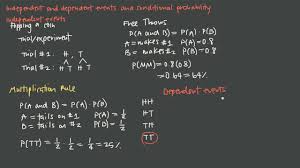 Independent and dependent events and conditional probability
Independent events
Flipping a coin
Trial/experiment
Trial #1: H T
Trial #2: H T H T
Multiplication Rule
P(A and B) = P(A) · P(B)
A = tails on #1 P(A) = 1/2
B = tails on #2 P(B) = 1/2
P(TT) = 1/2 · 1/2 = 1/4 = 25%
HH
HT
TH
TT
Free Throws
P(A and B) = P(A) · P(B)
A = makes #1 P(A) = 0.8
B = makes #2 P(B) = 0.8
P(MM) = 0.8(0.8)
= 0.64 = 64%
Dependent events